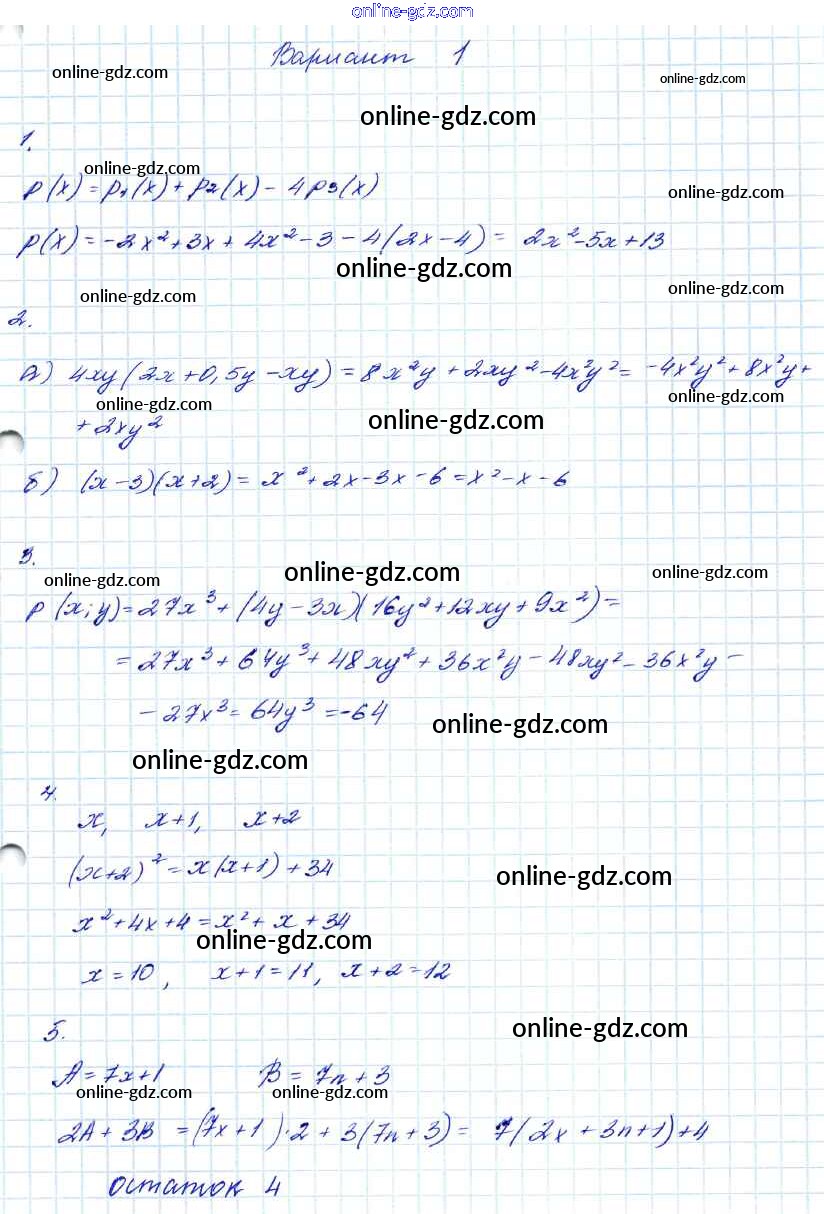 online-gdz.com
Вариант 1
online-gdz.com
online-gdz.com
online-gdz.com
1.
online-gdz.com
p(x) = p₁(x) + p₂(x) - 4p₃(x)
online-gdz.com
p(x) = -2x² + 3x + 4x² - 3 - 4(2x - 4) = 2x² - 5x + 13
online-gdz.com
online-gdz.com
online-gdz.com
2.
а) 4xy(2x + 0,5y - xy) = 8x²y + 2xy² - 4x²y² = -4x²y² + 8x²y +
online-gdz.com
online-gdz.com
+ 2xy²
online-gdz.com
б) (x - 3)(x + 2) = x² + 2x - 3x - 6 = x² - x - 6
3.
online-gdz.com
online-gdz.com
online-gdz.com
p(x; y) = 27x³ + (4y - 3x)(16y² + 12xy + 9x²) =
= 27x³ + 64y³ + 48xy² + 36x²y - 48xy² - 36x²y -
- 27x³ = 64y³ = -64
online-gdz.com
online-gdz.com
4.
x, x+1, x+2
(x+2)² = x(x+1) + 34
online-gdz.com
x² + 4x + 4 = x² + x + 34
online-gdz.com
x = 10, x+1 = 11, x+2 = 12
5.
online-gdz.com
A = 7x+1 B = 7n + 3
online-gdz.com
online-gdz.com
2A + 3B = (7x + 1)·2 + 3(7n + 3) = 7(2x + 3n + 1) + 4
остаток 4